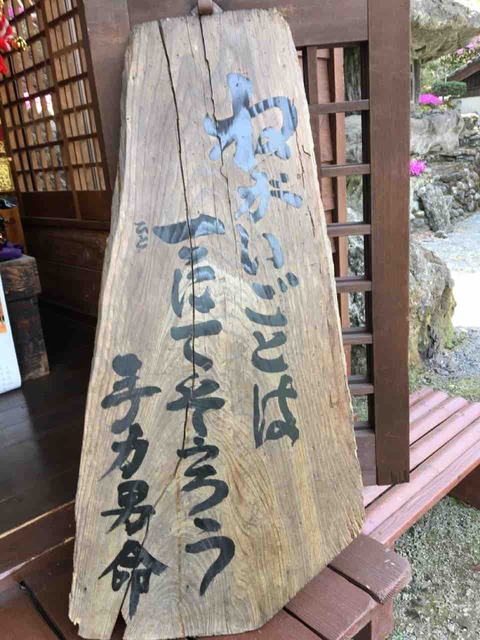 ねがいごとは
一こにてそうろう
ひと
手力男命